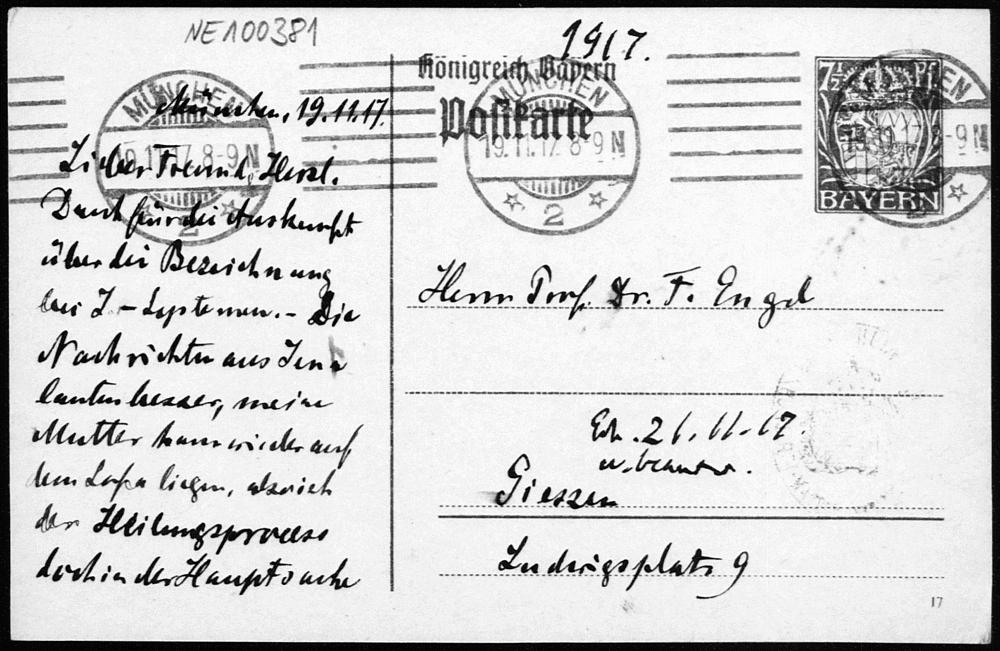 NE100381
1917.
Königreich Bayern
Postkarte
7½ Pf
BAYERN
MÜNCHEN
19.11.17. 8-9 N
2
MÜNCHEN
19.11.17. 8-9 N
2
8-9 N
München, 19.11.17.
Lieber Freund, Herzl.
Dank für die Auskunft
über die Bezeichnung
bei - Die
Nachrichten aus Jena
lauten besser, meine
Mutter kann wieder auf
dem Sofa liegen, also ist
der Heilungsprocess
doch in der Hauptsache
Herrn Prof. Dr. F. Engel
Erh. 21.11.17.
u. beantw.
Giessen
Ludwigsplatz 9
17